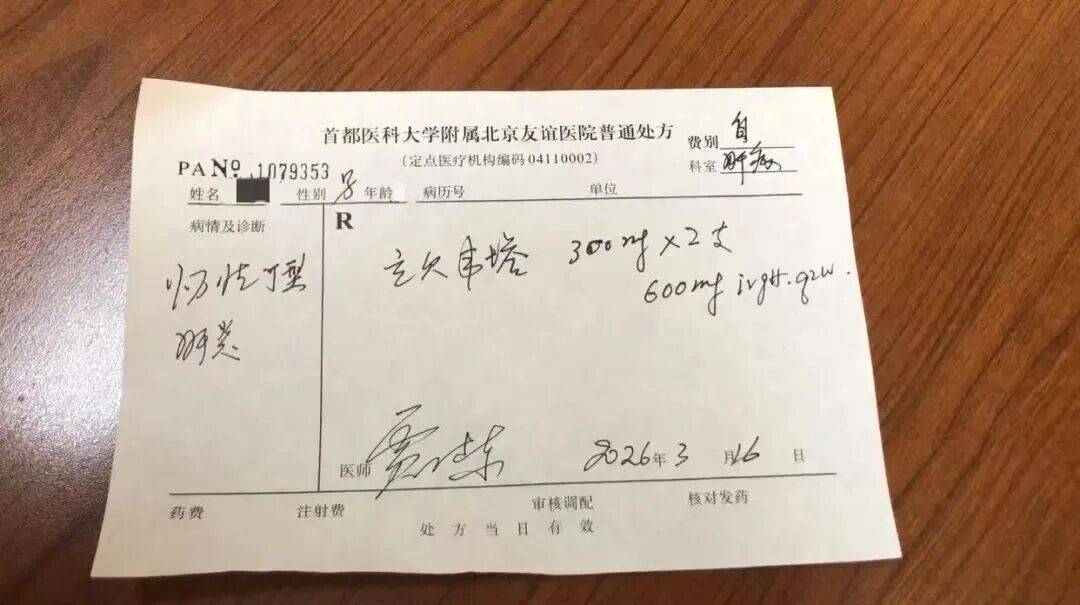 首都医科大学附属北京友谊医院普通处方
(定点医疗机构编码 04110002)
费别 自
科室 肝病
PA No. 1079353
姓名 性别 男 年龄 病历号 单位
病情及诊断
慢性丁型
肝炎
R
立贝韦塔 300mg×2支
600mg ivgtt.q2w.
医师 贾继东 2026年3月16日
药费 注射费 审核调配 核对发药
处方当日有效